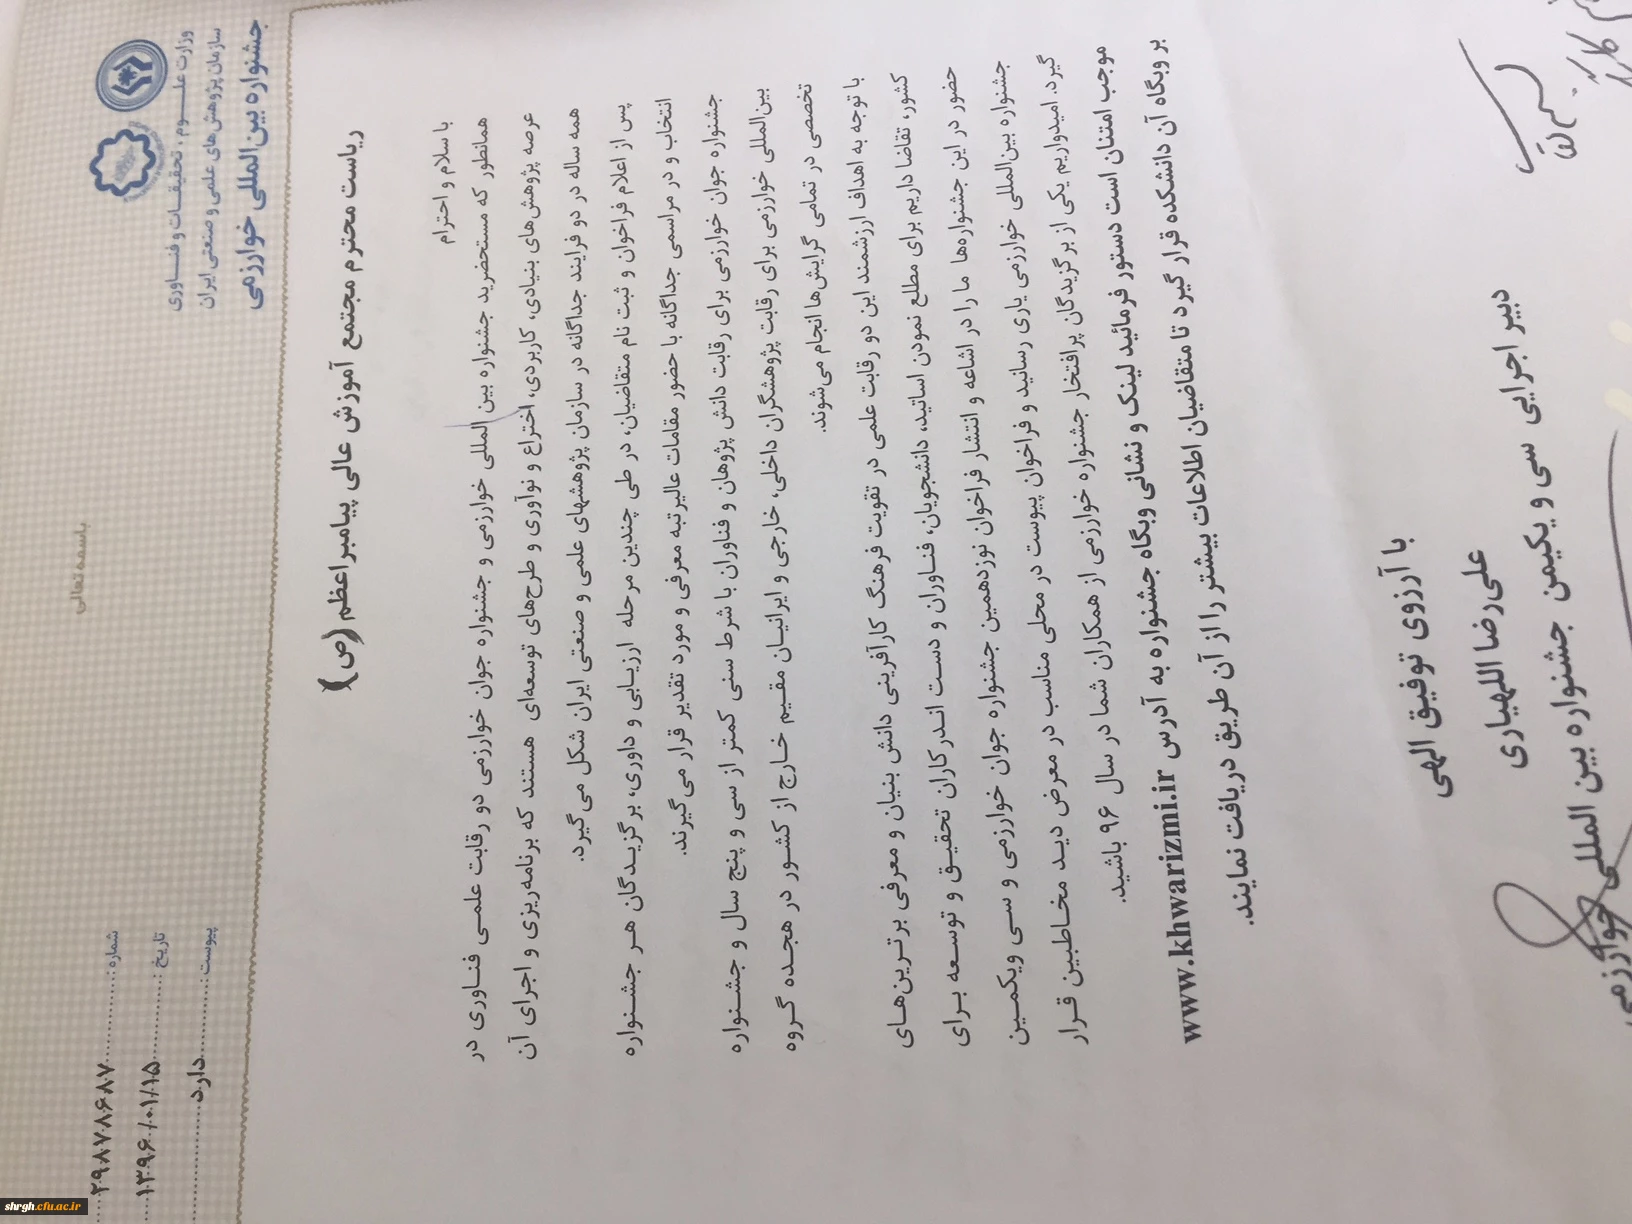 باسمه تعالی
وزارت علـــوم، تحقیقـات و فنـاوری
سازمان پژوهش‌های علمی و صنعتی ایران
جشنواره بین‌المللی خوارزمی
شماره: ۲۹۸۷۷۸۶۸۷
تاریخ: ۱۳۹۶/۰۱/۱۵
پیوست: دارد
ریاست محترم مجتمع آموزش عالی پیامبراعظم (ص)
با سلام و احترام
همانطور که مستحضرید جشنواره بین المللی خوارزمی و جشنواره جوان خوارزمی دو رقابت علمـی فنـاوری در
عرصه پژوهش‌های بنیادی، کاربردی، اختراع و نوآوری و طرح‌های توسعه‌ای هستند که برنامه‌ریزی و اجرای آن
همه ساله در دو فرایند جداگانه در سازمان پژوهشهای علمی و صنعتی ایران شکل می‌گیرد.
پس از اعلام فراخوان و ثبت نام متقاضیان، در طی چندین مرحله ارزیـابی و داوری، برگزیـدگان هـر جشـنواره
انتخاب و در مراسمی جداگانه با حضور مقامات عالیرتبه معرفی و مورد تقدیر قرار می‌گیرند.
جشنواره جوان خوارزمی برای رقابت دانش پژوهان و فناوران با شرط سنی کمتر از سی و پنج سال و جشـنواره
بین‌المللی خوارزمی برای رقابت پژوهشگران داخلی، خارجی و ایرانیـان مقـیم خـارج از کشـور در هجـده گـروه
تخصصی در تمامی گرایش‌ها انجام می‌شوند.
با توجه به اهداف ارزشمند این دو رقابت علمی در تقویت فرهنگ کارآفرینی دانش بنیان و معرفی برترین‌هـای
کشور، تقاضا داریم برای مطلع نمودن اساتید، دانشجویان، فنـاوران و دسـت انـدرکاران تحقیـق و توسـعه بـرای
حضور در این جشنواره‌ها ما را در اشاعه و انتشار فراخوان نوزدهمین جشنواره جوان خوارزمی و سـی ویکمـین
جشنواره بین‌المللی خوارزمی یاری رسانید و فراخوان پیوست در محلی مناسب در معرض دیـد مخـاطبین قـرار
گیرد. امیدواریم یکی از برگزیدگان پرافتخار جشنواره خوارزمی از همکاران شما در سال ۹۶ باشید.
موجب امتنان است دستور فرمائید لینک و نشانی وبگاه جشنواره به آدرس www.khwarizmi.ir
بر وبگاه آن دانشکده قرار گیرد تا متقاضیان اطلاعات بیشتر را از آن طریق دریافت نمایند.
با آرزوی توفیق الهی
علی‌رضا اللهیاری
دبیر اجرایی سی و یکیمن جشنواره بین المللی خوارزمی
shrgh.cfu.ac.ir